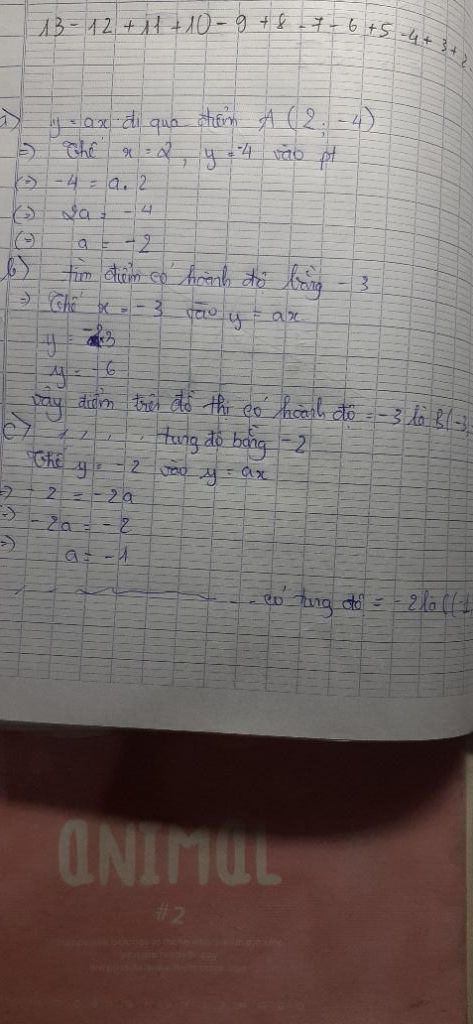 13 - 12 + 11 + 10 - 9 + 8 - 7 - 6 + 5 - 4 + 3 + 2
a) y = ax đi qua điểm A (2; -4)
=> Thế x = 2, y = -4 vào pt
(=> -4 = a. 2
(=> 2a = -4
(=> a = -2
b) tìm điểm có hoành độ bằng -3
=> Thế x = -3 vào y = ax
y = -2.3
y = -6
Vậy điểm trên đồ thị có hoành độ = -3 là B(-3
c) , , , , tung độ bằng -2
Thế y = -2 vào y = ax
=> -2 = -2a
=> -2a = -2
=> a = -1
có tung độ = -2 là C(-1
ANIMAL
#2